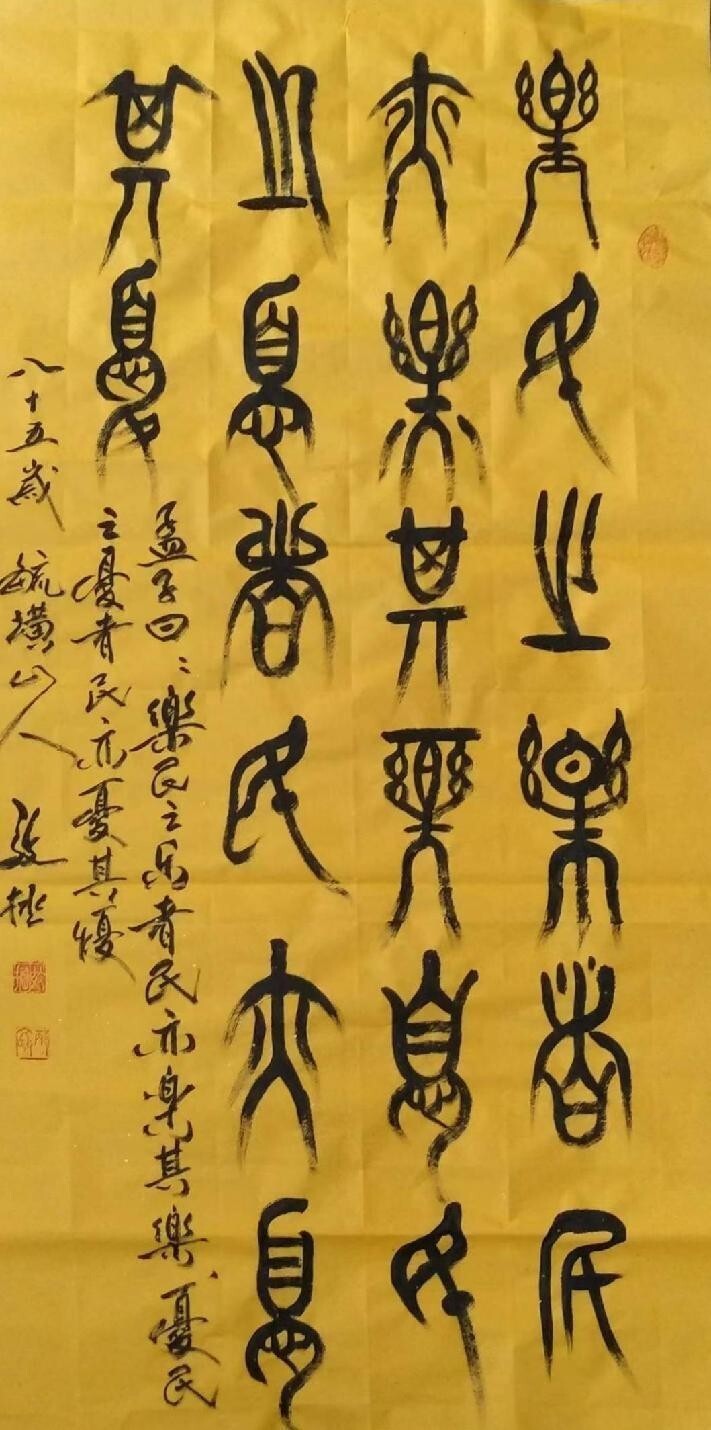 樂民之樂者民
亦樂其樂憂民
之憂者民亦憂
其憂
孟子曰：樂民之乐者民亦樂其樂憂民
之憂者民亦憂其憂
八十五歲 毓璜山人